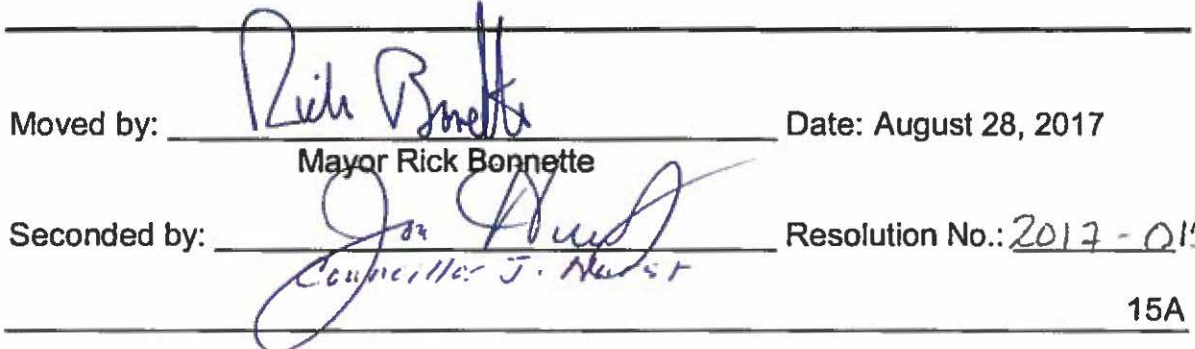 Moved by: Rick Bonnette Date: August 28, 2017
Mayor Rick Bonnette
Seconded by: Jon Hurst Resolution No.: 2017-01
Councillor J. Hurst
15A